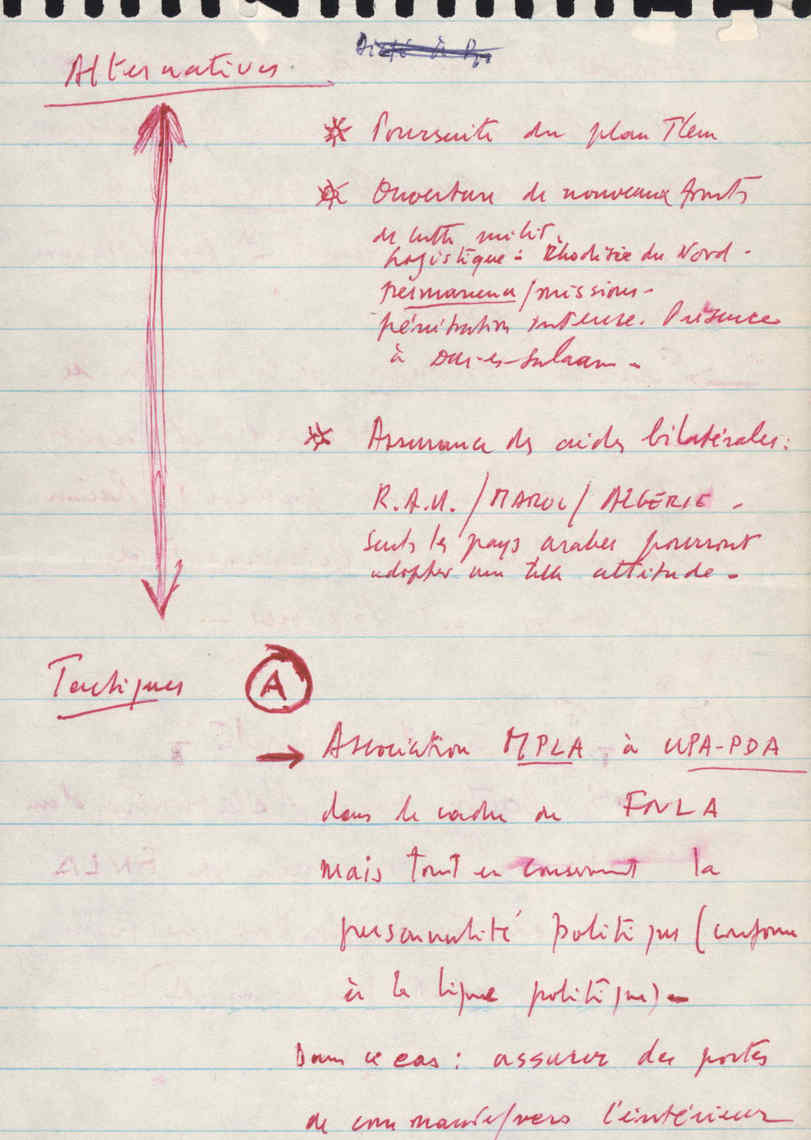 Alternatives
* Poursuite du plan Tlem
* Ouverture de nouveaux fronts
de lutte milit.
Logistique: Rhodésie du Nord -
permanence/missions -
pénétration intense. Présence
à Dar-es-Salaam -
* Assurance des aides bilatérales:
R.A.U. / MAROC / ALGÉRIE -
Seuls les pays arabes pourront
adopter une telle attitude -
Tactiques A
→ Association MPLA à UPA-PDA
dans le cadre du FNLA
mais tout en conservant la
personnalité politique (conforme
à la ligne politique) -
Dans ce cas: assurer des postes
de commande/vers l'intérieur